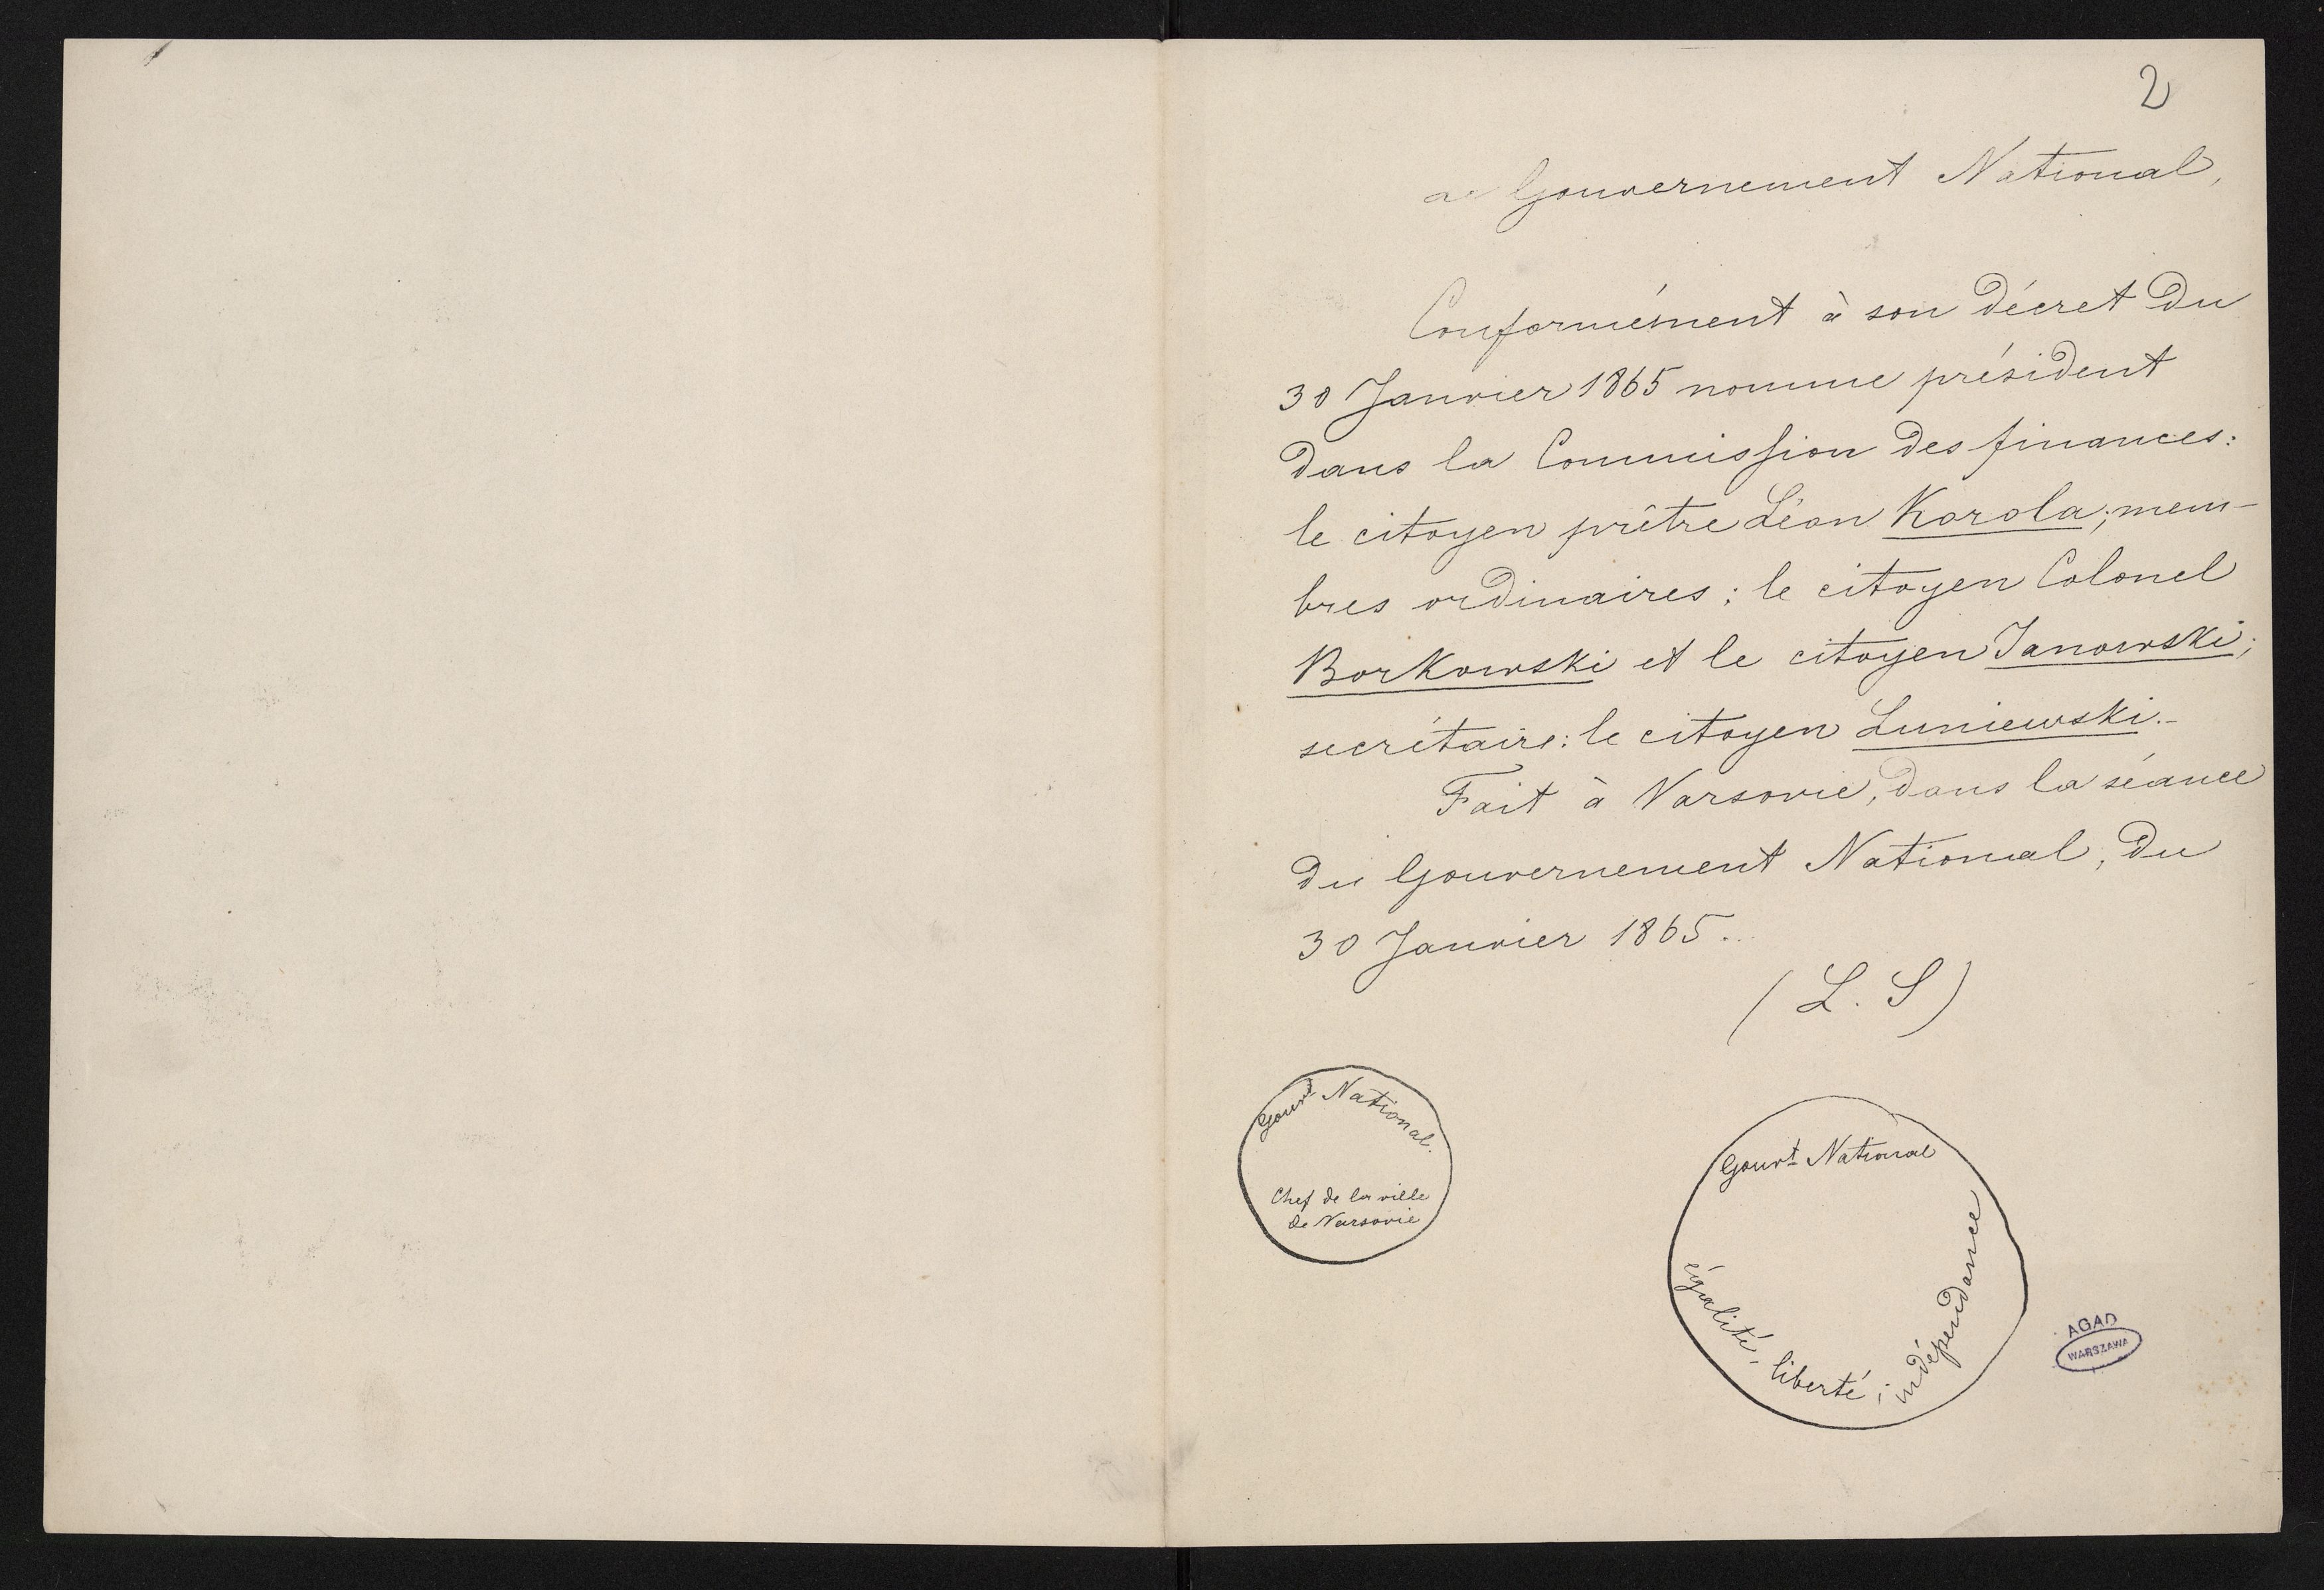 2
Gouvernement National,
Conformément à son décret du
30 Janvier 1865 nomme président
dans la Commission des finances:
le citoyen prêtre Léon Korola; mem-
bres ordinaires: le citoyen Colonel
Borkowski et le citoyen Janowski;
secrétaire: le citoyen Luniewski.-
Fait à Varsovie, dans la séance
du Gouvernement National, du
30 Janvier 1865..
(L. S)
Gouvt National.
Chef de la ville
de Varsovie
Gouvt National
égalité, liberté, indépendance
AGAD
WARSZAWA